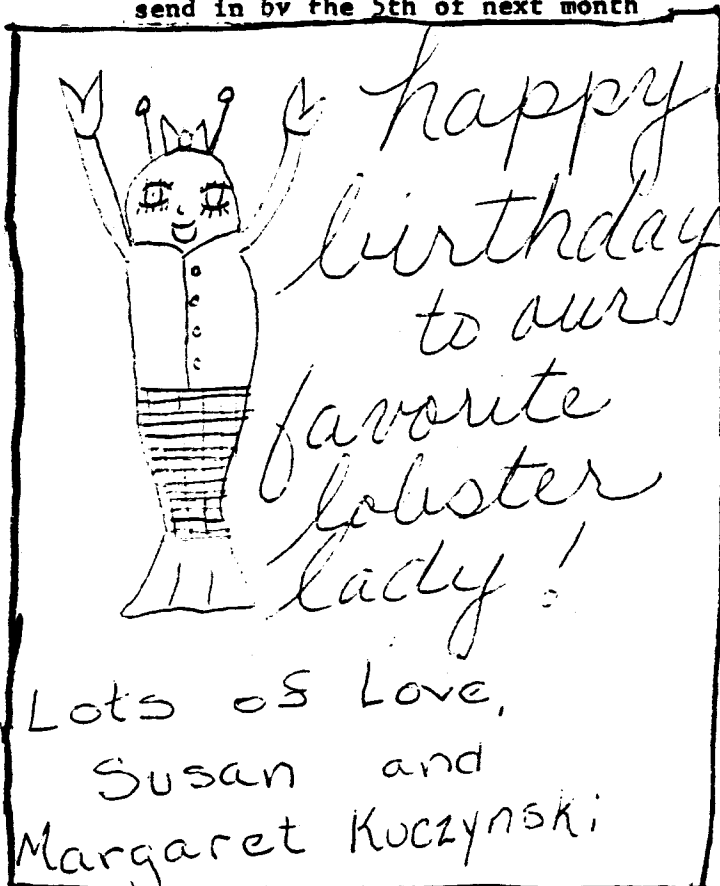 send in by the 5th of next month
happy
birthday
to our
favorite
lobster
lady!
Lots of Love,
Susan and
Margaret Kuczynski